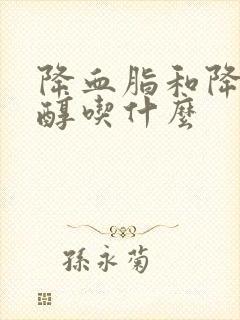 降血脂和降
醇喫什麼
孫永菊